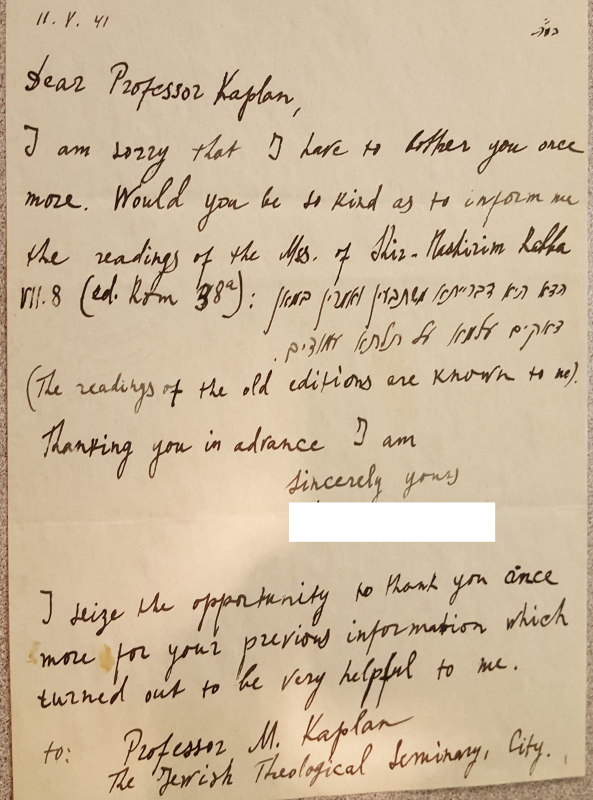 11. V. 41
בס״ד
Dear Professor Kaplan,
I am sorry that I have to bother you once
more. Would you be so kind as to inform me
the readings of the Mss. of Shir-Hashirim Rabba
VII.8 (ed. Rom 38a): הדא היא דברייתא משתבעין ואמרין במאן
דאקים עלמא על תלתא עמודים.
(The readings of the old editions are known to me).
Thanking you in advance I am
sincerely yours
I seize the opportunity to thank you once
more for your previous information which
turned out to be very helpful to me.
to: Professor M. Kaplan
The Jewish Theological Seminary, City.